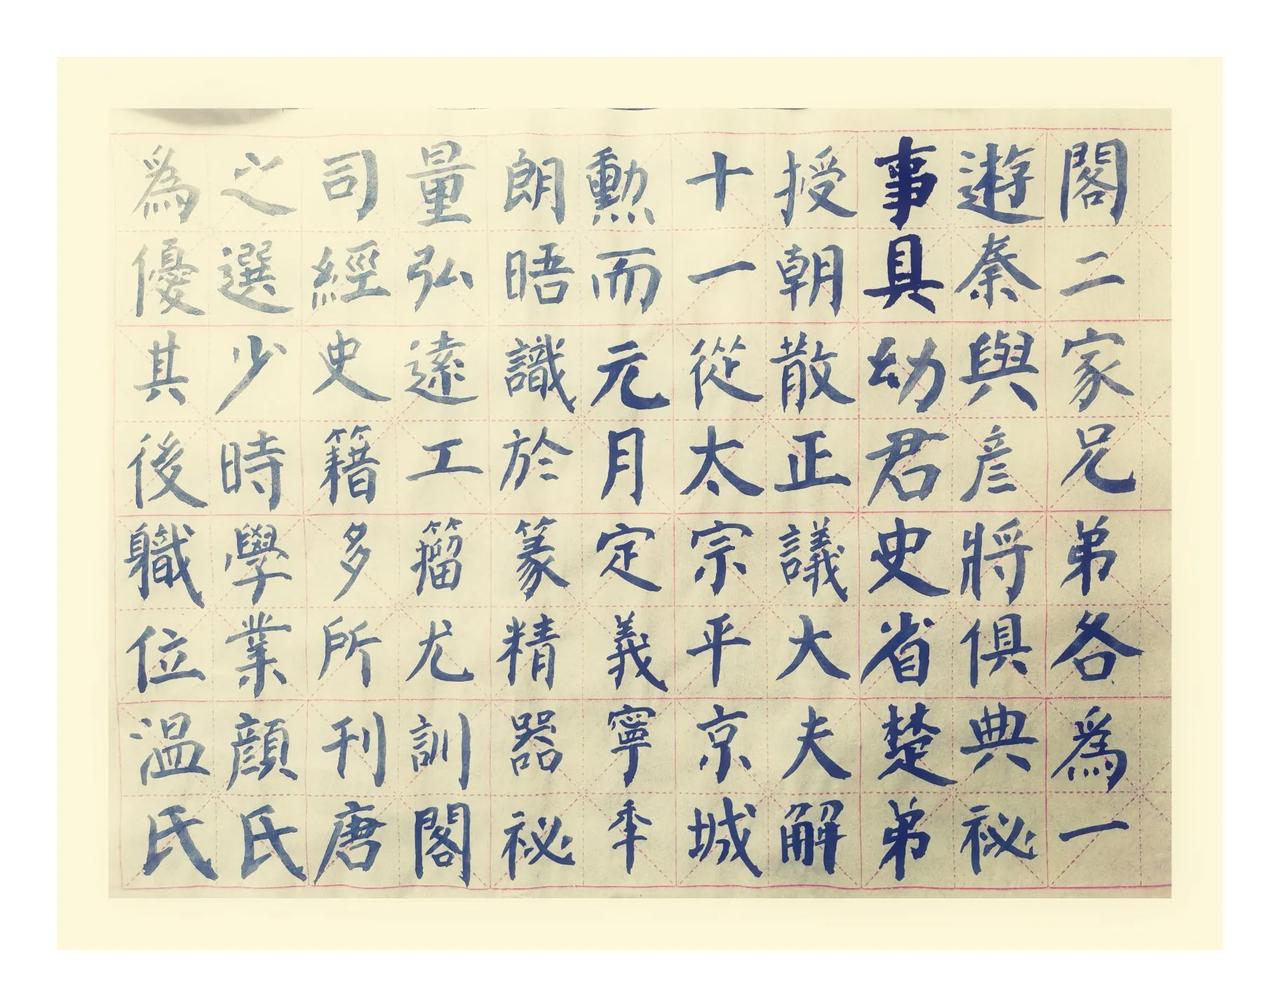 閣二家兄弟各為一
遊秦與彦將俱典祕
事具幼君史省楚弟
授朝散正議大夫解
十一從太宗平京城
勲而元月定義寧秊
朗晤識於篆精器祕
量弘遠工籀尤訓閣
司經史籍多所刊唐
之選少時學業顔氏
為優其後職位温氏